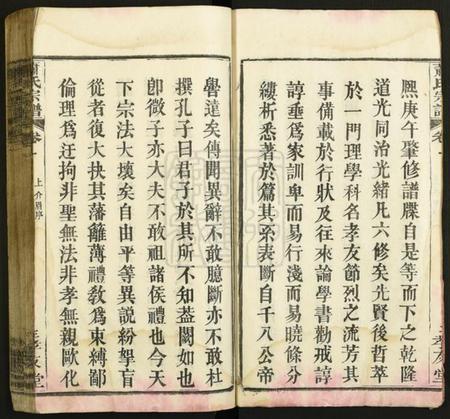 熙庚午肇修譜牒自是等而下之乾隆
道光同治光緒凡六修矣先賢後哲萃
於一門理學科名孝友節烈之流芳其
事備載於行狀及往來論學書勸戒諄
諄垂爲家訓卑而易行淺而易曉條分
縷析悉著於篇其系表斷自千八公帝
嚳遠矣傳聞異辭不敢臆斷亦不敢杜
撰孔子曰君子於其所不知葢闕如也
卽微子亦大夫不敢祖諸侯禮也今天
下宗法大壞矣自由平等異說紛挐盲
從者復大抉其藩籬薄禮敎爲束縛鄙
倫理爲迂拘非聖無法非孝無親歐化
蕭氏宗譜 卷一
孝友堂
蕭氏宗譜 卷一 上 序
孝友堂